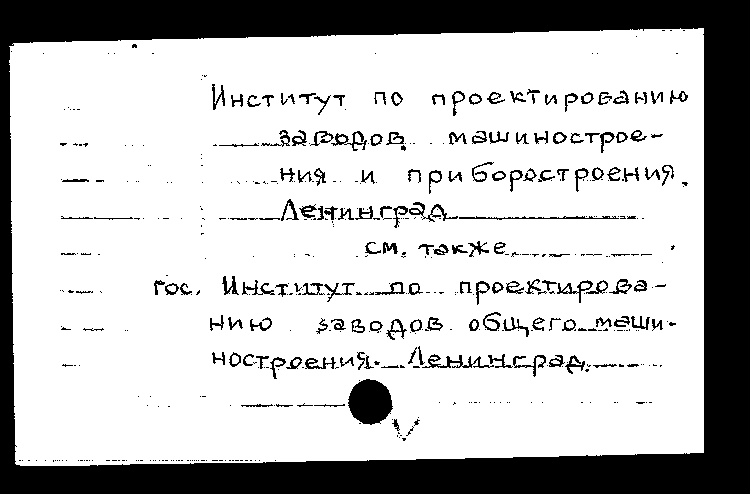 Институт по проектированию
заводов машинострое-
ния и приборостроения.
Ленинград
см. также
гос. Институт по проектирова-
нию заводов общего маши-
ностроения. Ленинград.